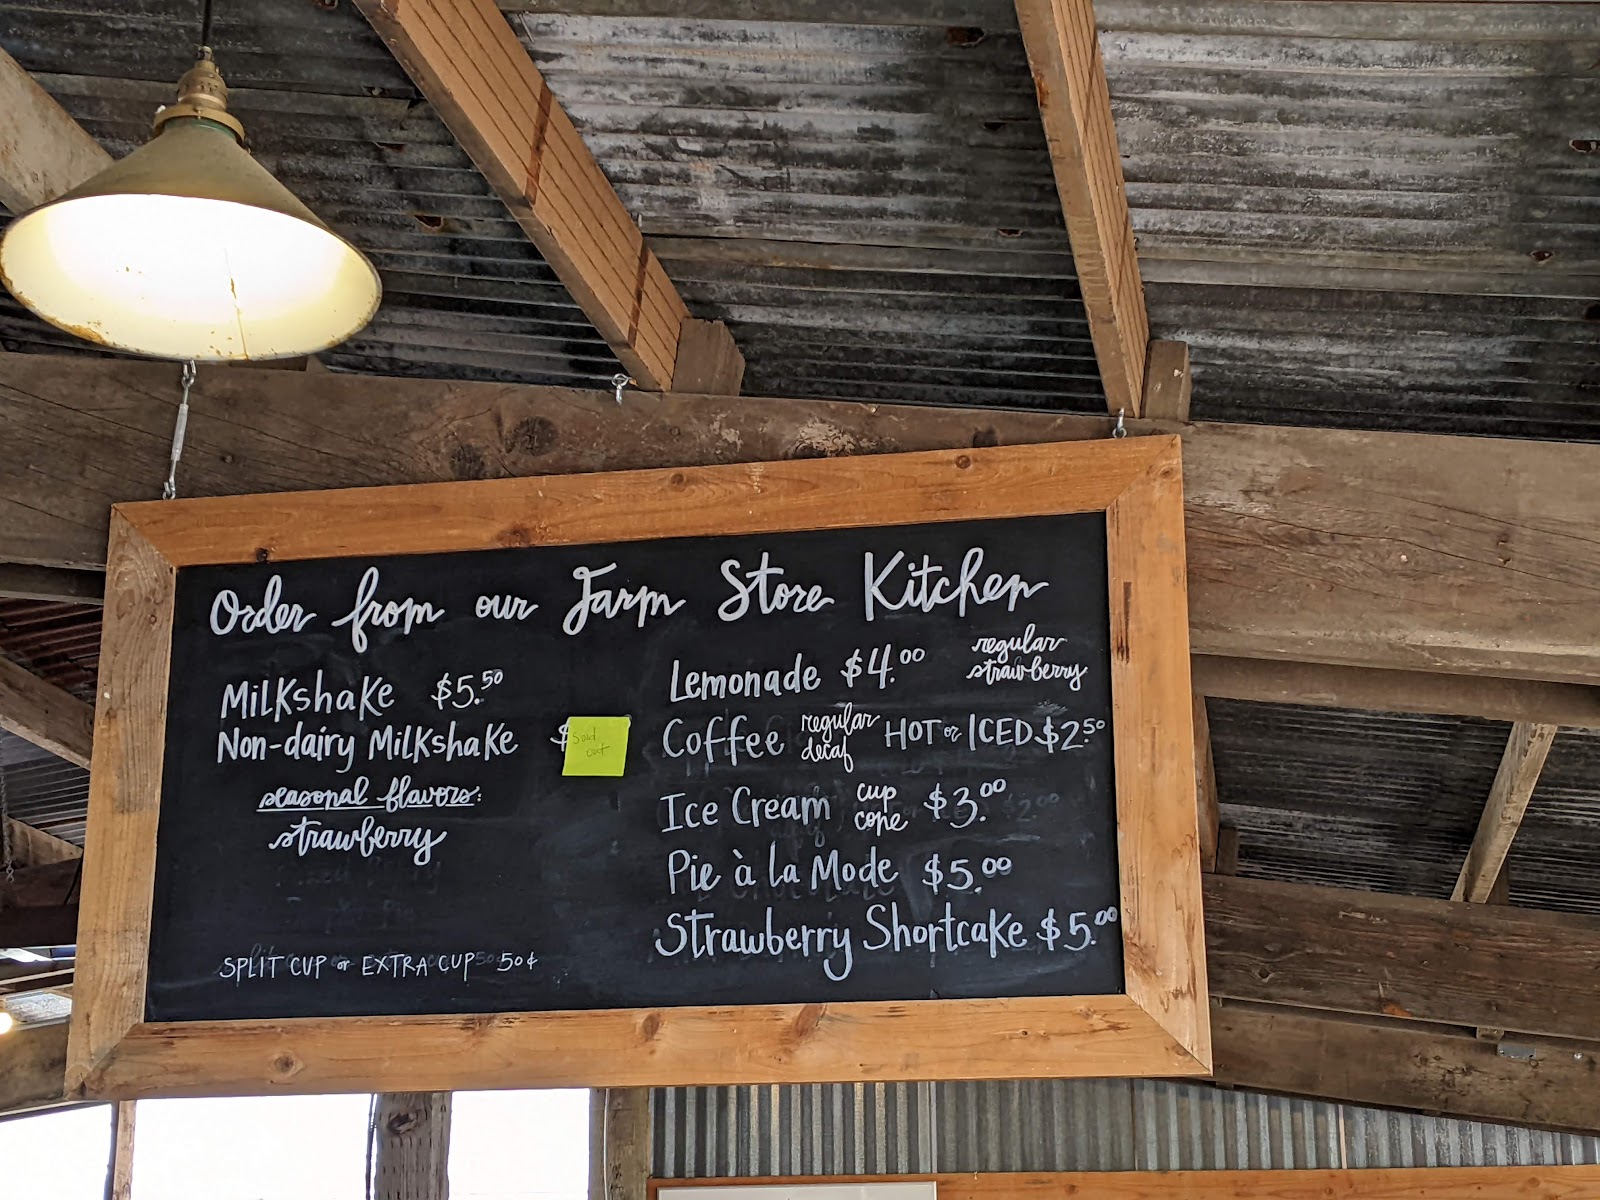 Order from our Farm Store Kitchen
Milkshake $5.50
Non-dairy Milkshake $
Sold
out
seasonal flavors:
strawberry
SPLIT CUP or EXTRA CUP 50¢
Lemonade $4.00 regular
strawberry
Coffee regular
decaf HOT or ICED $2.50
Ice Cream cup
cone $3.00
Pie à la Mode $5.00
Strawberry Shortcake $5.00